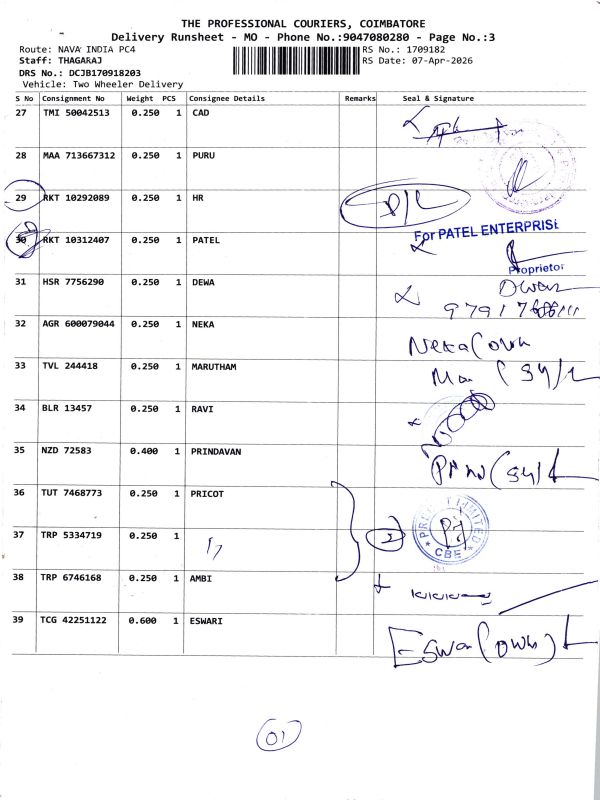 THE PROFESSIONAL COURIERS, COIMBATORE
Delivery Runsheet - MO - Phone No.:9047080280 - Page No.:3
Route: NAVA INDIA PC4
RS No.: 1709182
Staff: THAGARAJ
RS Date: 07-Apr-2026
DRS No.: DCJB170918203
Vehicle: Two Wheeler Delivery
S No Consignment No Weight PCS Consignee Details Remarks Seal & Signature
27 TMI 50042513 0.250 1 CAD
28 MAA 713667312 0.250 1 PURU
29 RKT 10292089 0.250 1 HR
30 RKT 10312407 0.250 1 PATEL
For PATEL ENTERPRISE
Proprietor
31 HSR 7756290 0.250 1 DEWA
32 AGR 600079044 0.250 1 NEKA
Neka (own
33 TVL 244418 0.250 1 MARUTHAM
34 BLR 13457 0.250 1 RAVI
35 NZD 72583 0.400 1 PRINDAVAN
36 TUT 7468773 0.250 1 PRICOT
37 TRP 5334719 0.250 1
LIMITED
CBE
38 TRP 6746168 0.250 1 AMBI
39 TCG 42251122 0.600 1 ESWARI
Eswar (own)
01